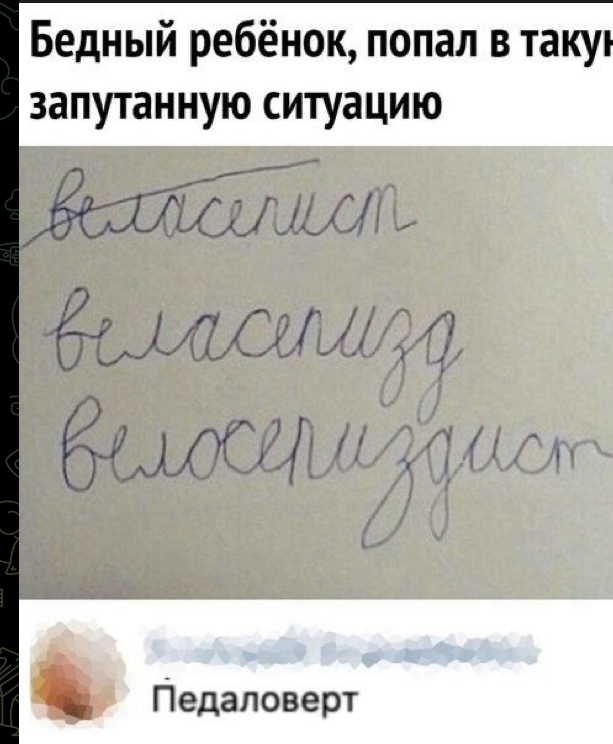 Бедный ребёнок, попал в такую
запутанную ситуацию
веласепист
веласепизд
велосепиздист
Педаловерт